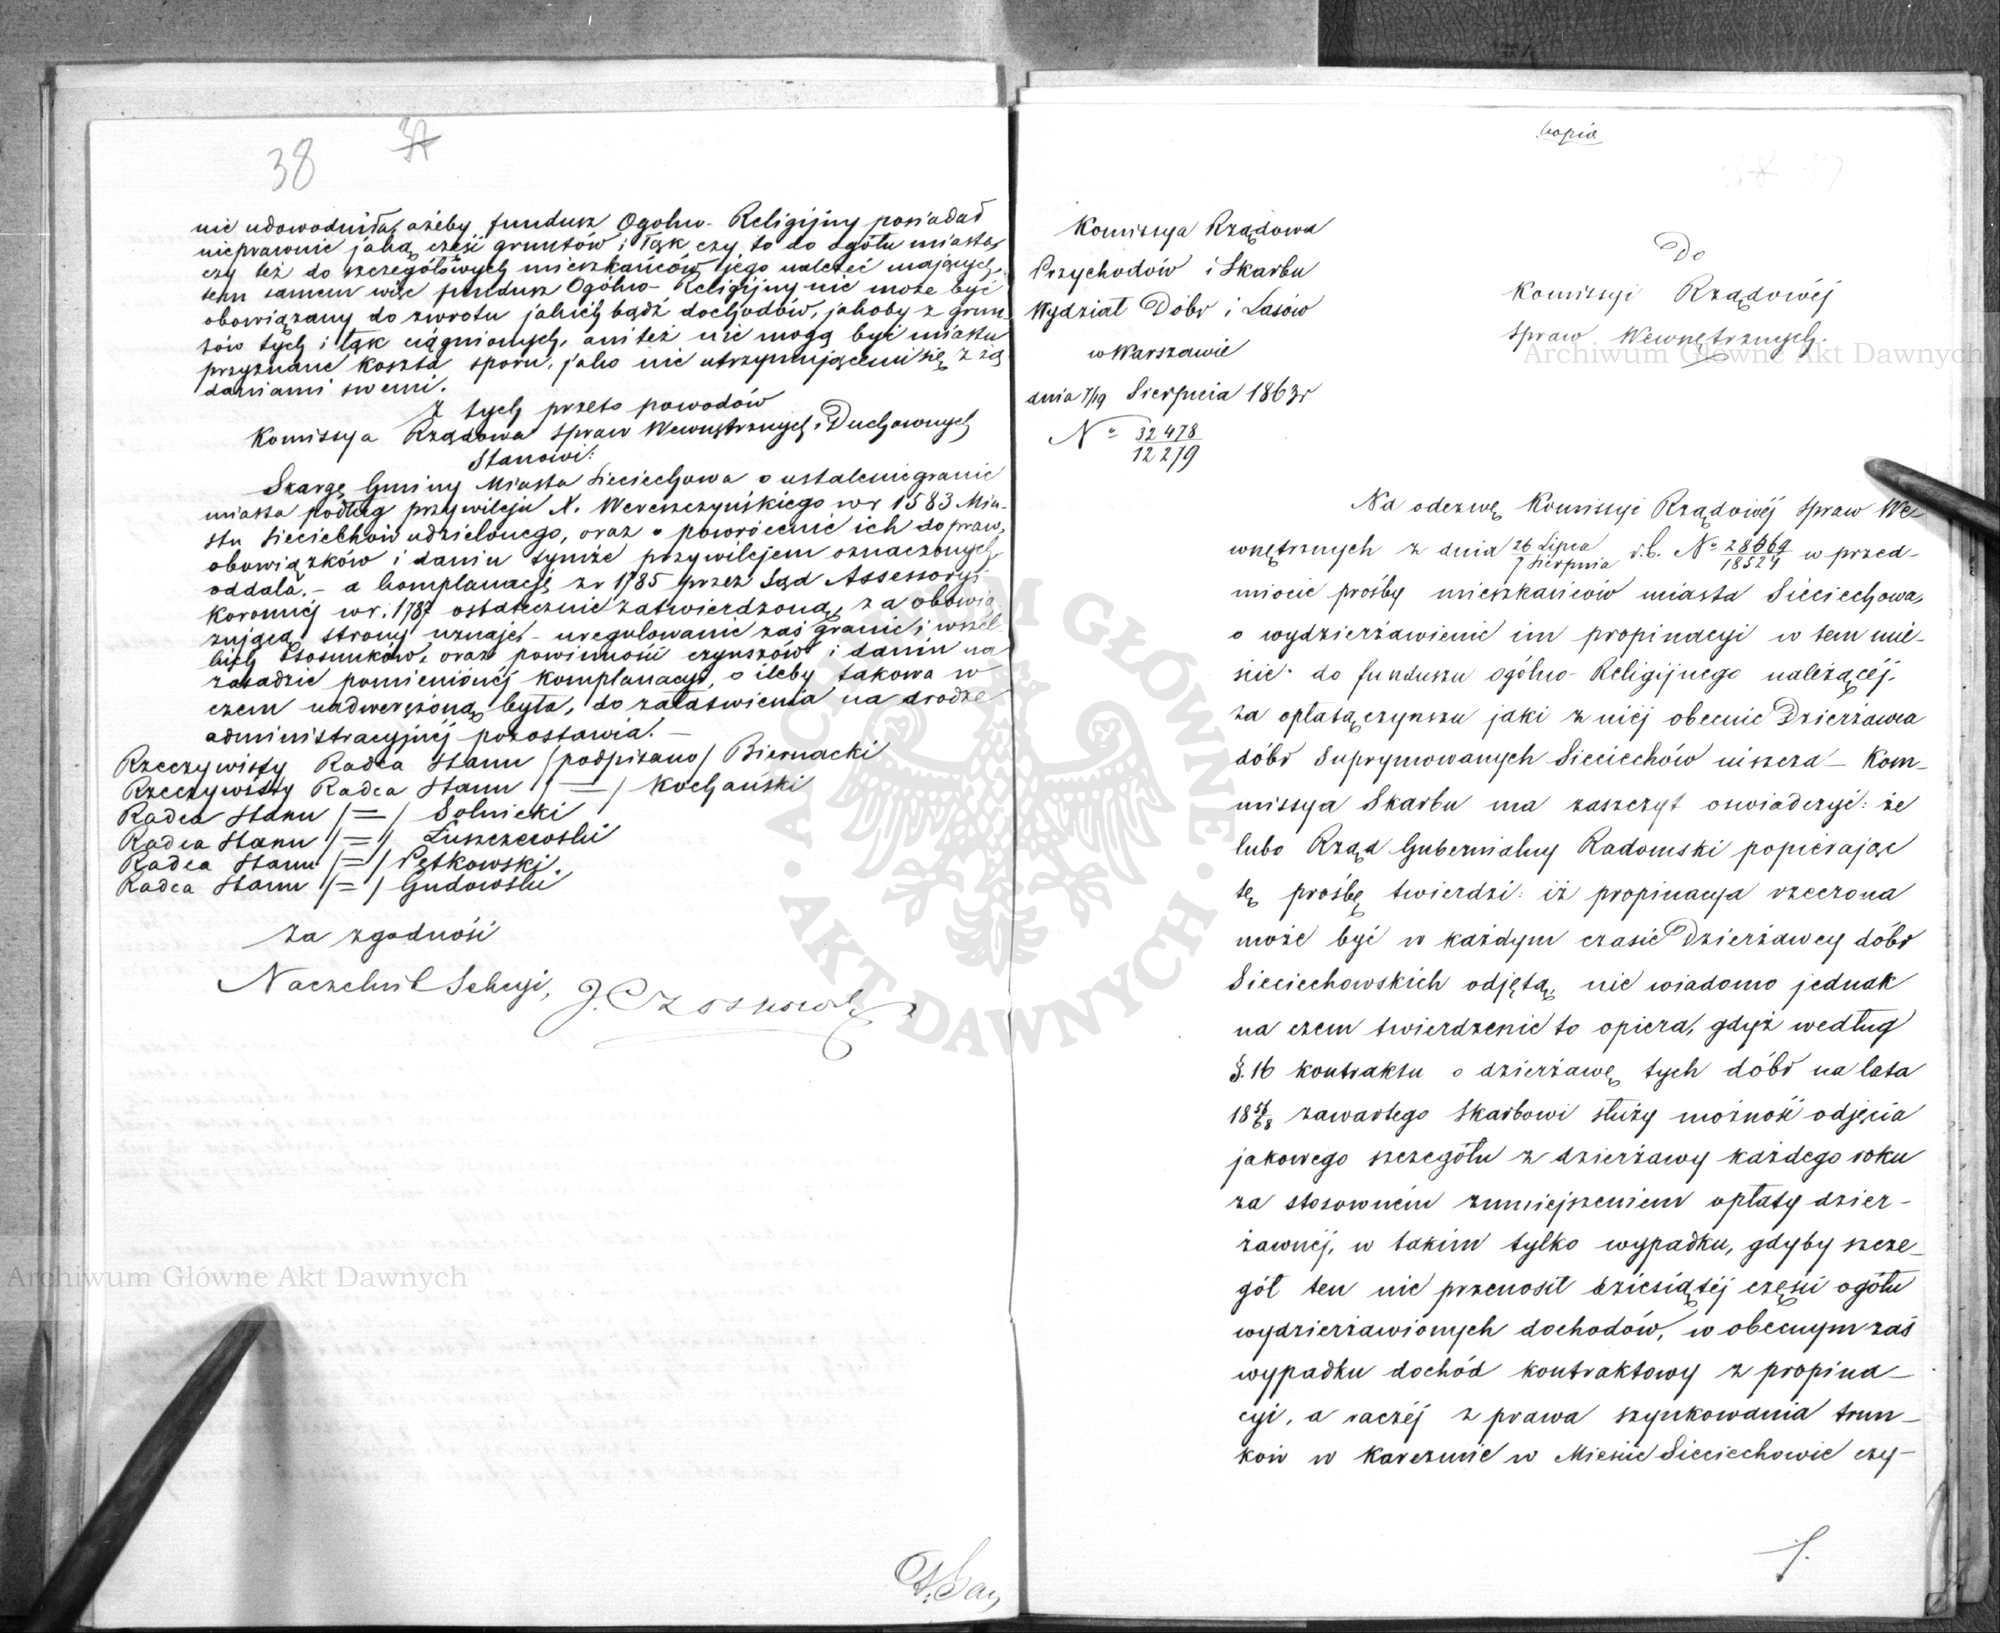 38 37
nie udowodniła, ażeby fundusz Ogólno-Religijny posiadał
nieprawnie jaką część gruntów i łąk czy to do ogółu miasta,
czy też do szczegółowych mieszkańców jego należeć mających,
tem samem więc fundusz Ogólno-Religijny nie może być
obowiązany do zwrotu jakich bądź dochodów, jakoby z grun-
tów tych i łąk ciągnionych, ani też nie mogą być miastu
przyznane koszta sporu, jako nie utrzymującemu się z żą-
daniami swemi.
Z tych przeto powodów
Komissya Rządowa Spraw Wewnętrznych i Duchownych
Stanowi:
Skargę Gminy Miasta Sieciechowa o ustalenie granic
miasta podług przywileju X. Wereszczyńskiego w r 1583 Mia-
stu Sieciechów udzielonego, oraz o powrócenie ich do praw,
obowiązków i danin tymże przywilejem oznaczonych
oddala. – a komplanacyę z r 1785 przez Sąd Assessoryi
Koronnej w r. 1787 ostatecznie zatwierdzoną, za obowią-
zującą strony uznaje, – uregulowanie zaś granic i wszel-
kich stosunków, oraz powinności czynszów i danin na
zasadzie pomienionéj komplanacyi, o ileby takowa w
czem nadwerężoną była, do załatwienia na drodze
administracyjnéj pozostawia. –
Rzeczywisty Radca Stanu /podpisano/ Biernacki
Rzeczywisty Radca Stanu / = / Kochański
Radca Stanu / = / Solnicki
Radca Stanu / = / Łuszczewski
Radca Stanu / = / Pętkowski.
Radca Stanu / = / Gudowski
Za zgodność
Naczelnik Sekcyi,
kopia
Komissya Rządowa
Przychodów i Skarbu
Wydział Dóbr i Lasów
w Warszawie
dnia 7/19 Sierpnia 1863 r
No 32478/12279
Do
Komissyi Rządowéj
Spraw Wewnętrznych.
Na odezwę Komissyi Rządowéj Spraw We-
wnętrznych z dnia 26 Lipca/7 Sierpnia r.b. No 28669/18524 w przed-
miocie prośby mieszkańców miasta Sieciechowa,
o wydzierżawienie im propinacyi w tem mie-
ście do funduszu ogólno-Religijnego należącéj,
za opłatą czynszu jaki z niéj obecnie Dzierżawca
dóbr Suprymowanych Sieciechów uiszcza – Kom-
missya Skarbu ma zaszczyt oświadczyć: że
lubo Rząd Gubernialny Radomski popierając
tę prośbę twierdzi: iż propinacya rzeczona
może być w każdym czasie Dzierżawcy dóbr
Sieciechowskich odjętą, nie wiadomo jednak
na czem twierdzenie to opiera, gdyż według
§. 16 kontraktu o dzierżawę tych dóbr na lata
18 56/68 zawartego Skarbowi służy możność odjęcia
jakowego szczegółu z dzierżawy każdego roku
za stosowném zmniejszeniem opłaty dzier-
żawnéj, w takim tylko wypadku, gdyby szcze-
gół ten nie przenosił dziesiątéj części ogółu
wydzierżawionych dochodów, w obecnym zaś
wypadku dochód kontraktowy z propina-
cyi, a raczéj z prawa szynkowania trun-
ków w Karczmie w Mieście Sieciechowie czy-
Archiwum Główne Akt Dawnych
Archiwum Główne Akt Dawnych
ARCHIWUM GŁÓWNE · AKT DAWNYCH ·